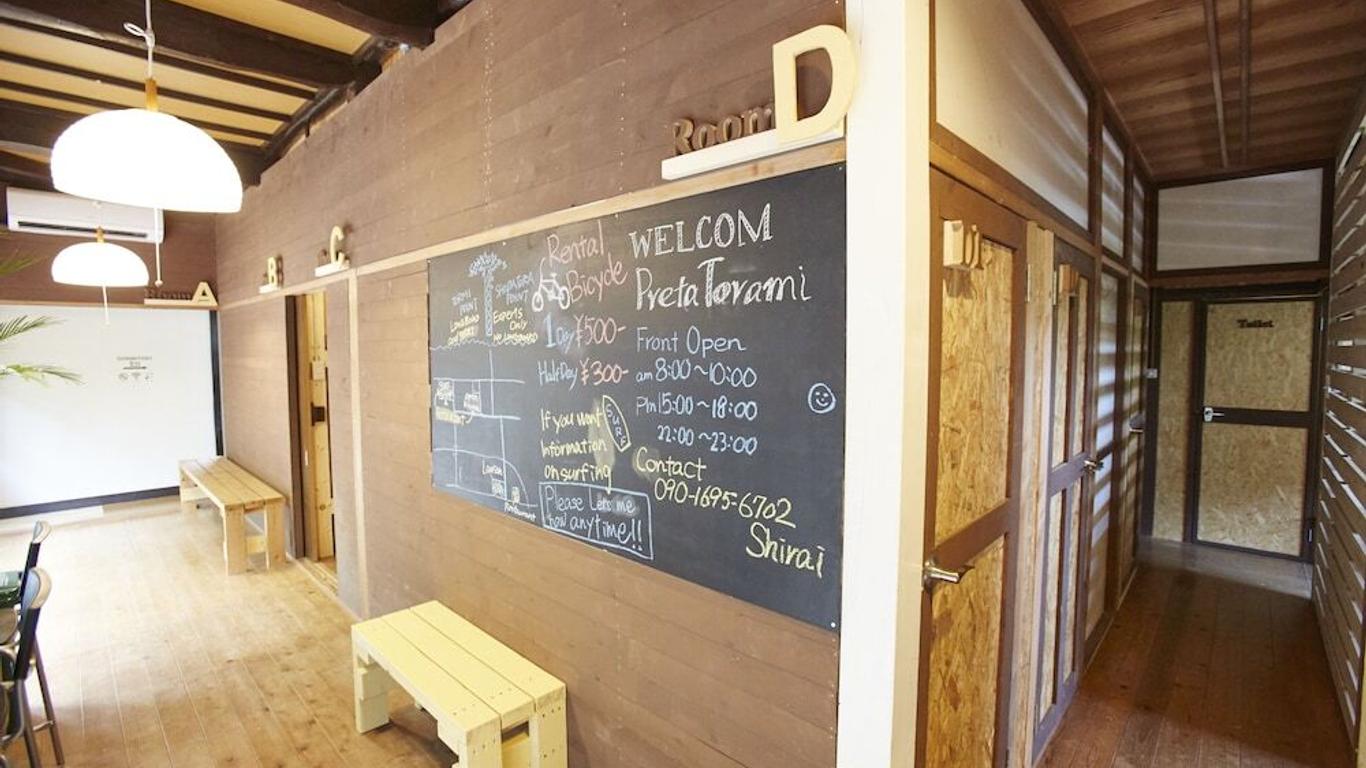 Room D
C
B
A
Toilet
WELCOM
PretaTorami
Rental
Bicycle
1Day ¥500-
HalfDay ¥300-
POINT
Experts
Only
Front Open
am 8:00~10:00
Pm 15:00~18:00
22:00~23:00
Contact
090-1695-6702
Shirai
If you want
Information
on surfing
SURF
Please Let me
know anytime!!
Lawson
Restaurant